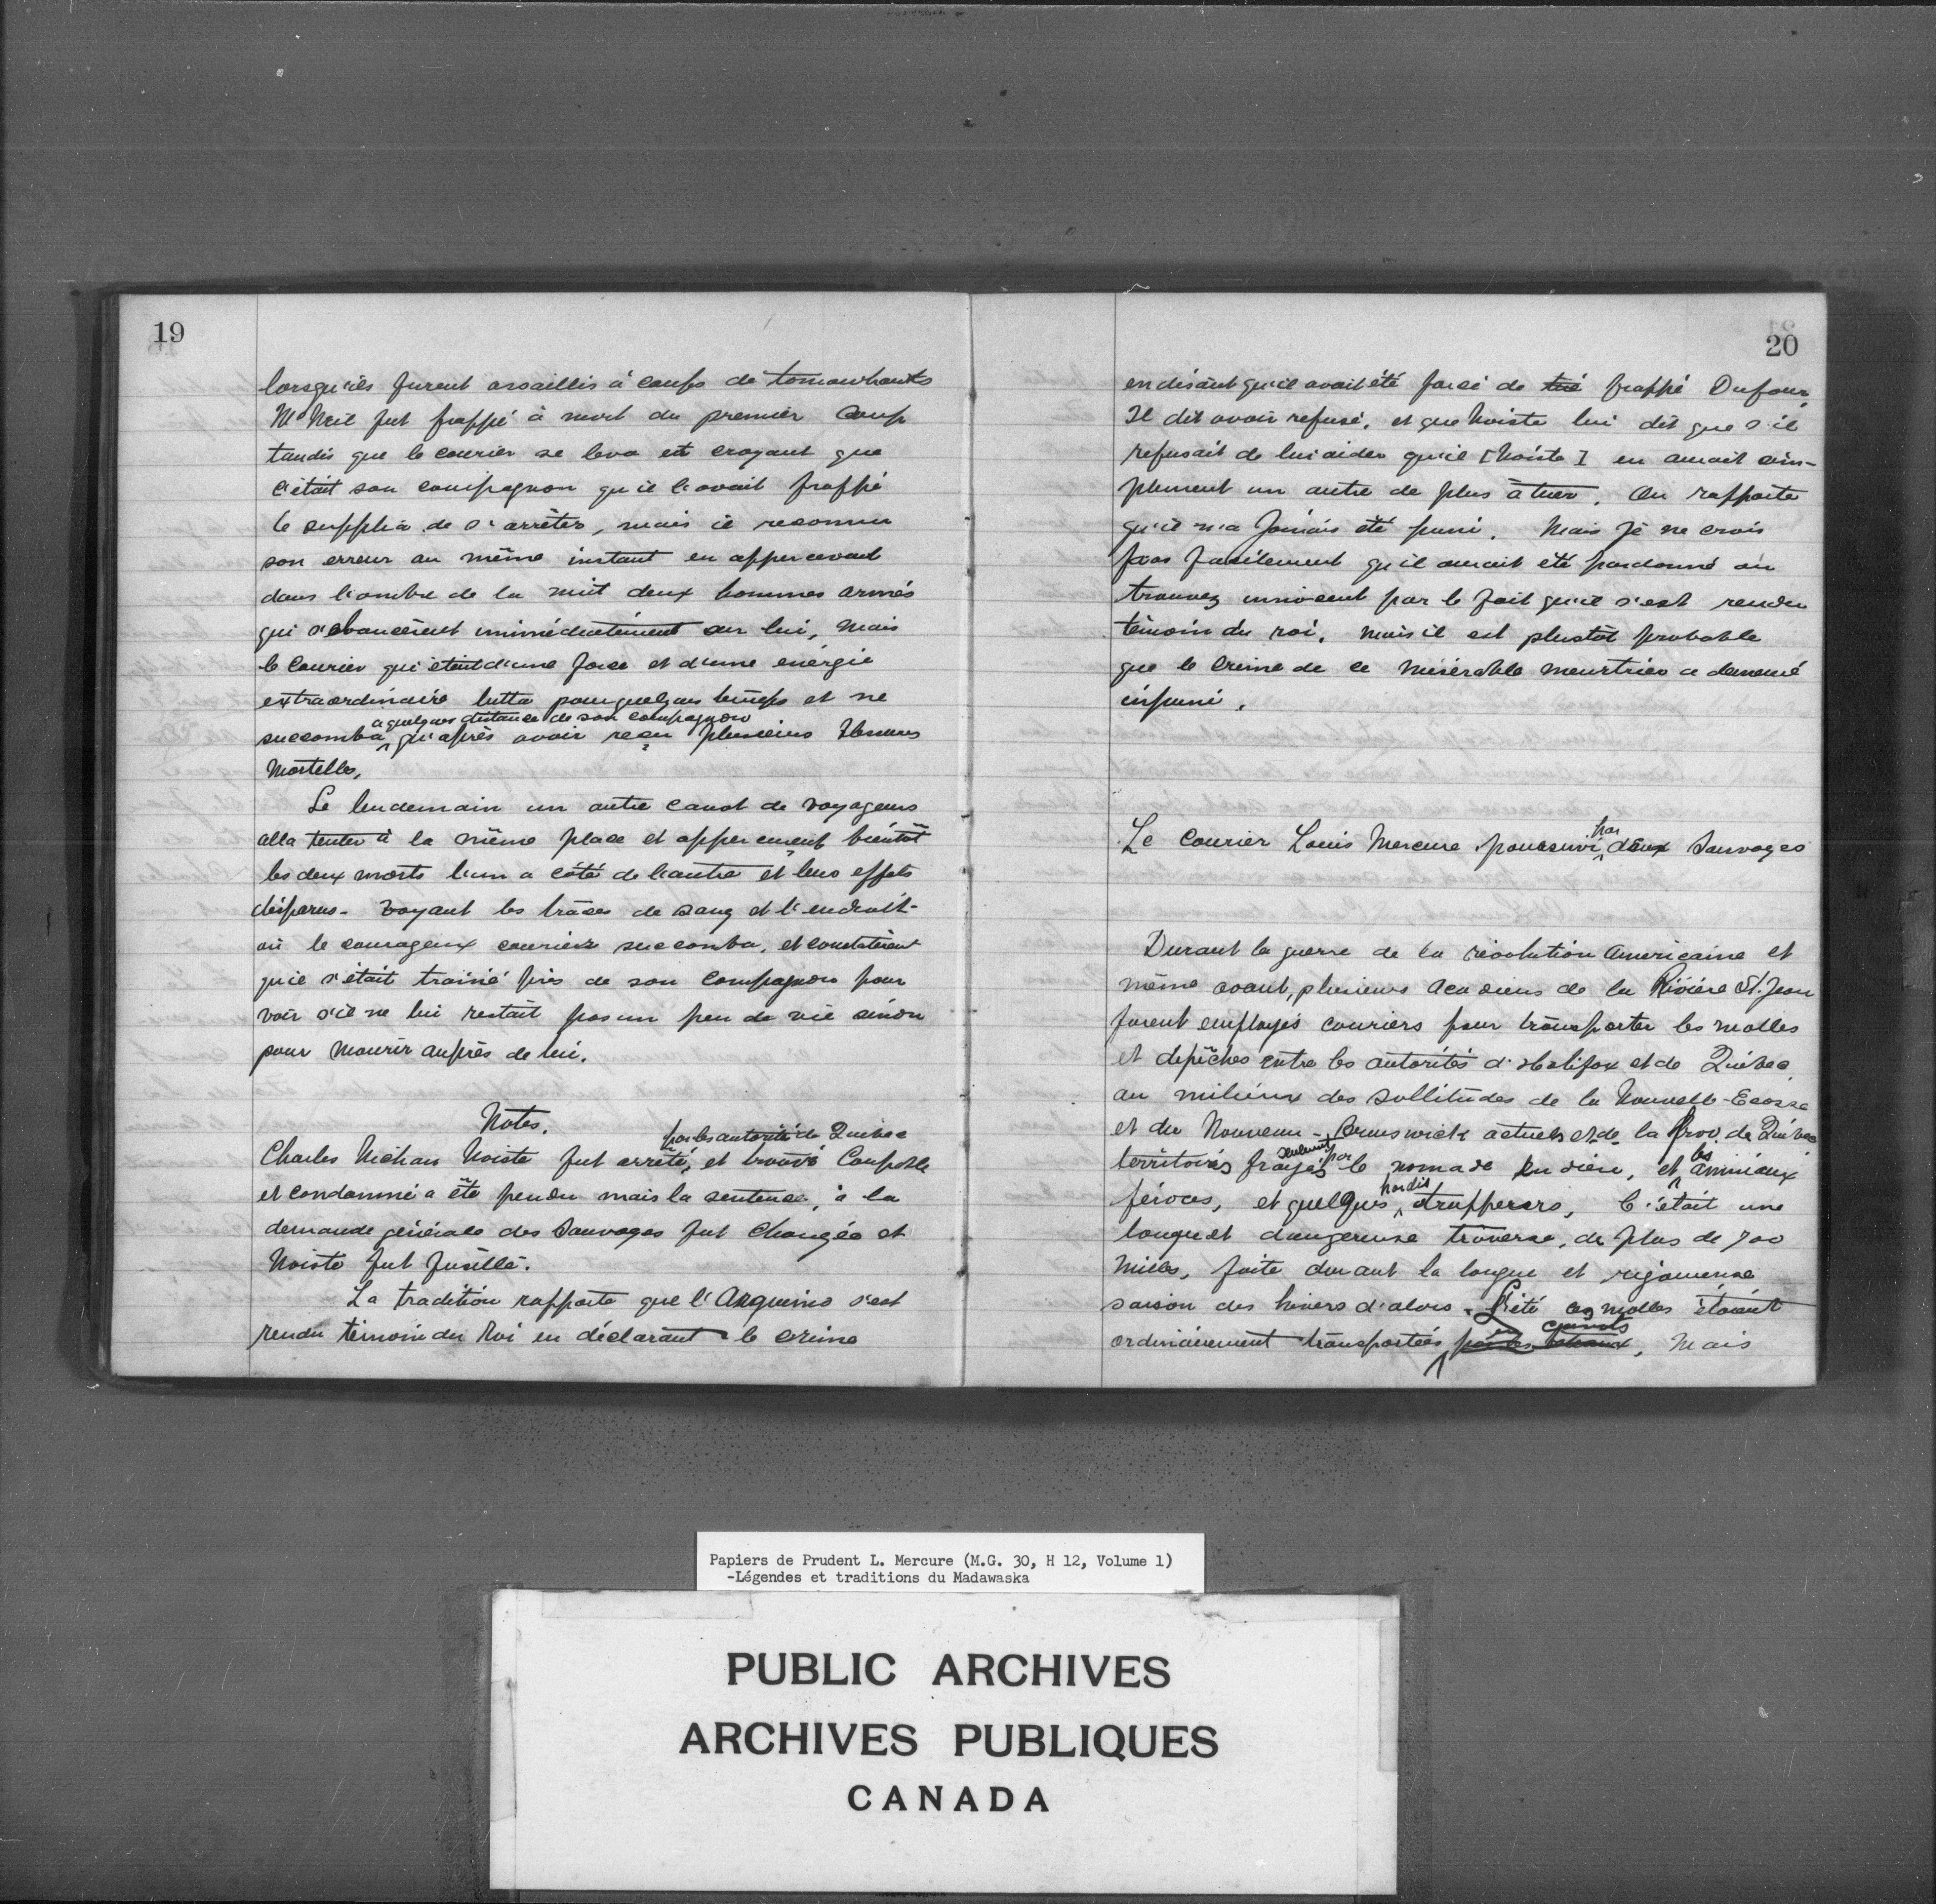 19
lorsqu'ils furent assaillis à coups de tomawhawks
McNeil fut frappé à mort du premier coup
tandis que le courier se leva et croyant que
c'était son compagnon qu'il l'avait frappé
le supplia de s'arrêter, mais il reconnu
son erreur au même instant en appercevant
dans l'ombre de la nuit deux hommes armés
qui s'élancèrent immédiatement sur lui, mais
le courier qui était d'une force et d'une énérgie
extraordinaire lutta pour quelques temps et ne
a quelques distance de son compagnon
succomba qu'après avoir reçu plusieurs blessures
Mortelles,
Le lendemain un autre canot de voyageurs
alla tenter à la même place et apperçurent bientôt
les deux morts l'un a côté de l'autre et leurs effets
disparus - voyant les traces de sang et l'endroit
où le courageux courier succomba, et constatèrent
qu'il s'était trainé près de son compagnon pour
voir s'il ne lui restait pas un peu de vie sinon
pour mourir auprès de lui.
Notes.
par les autorité de Québec
Charles Nichau Noiste fut arrêté, et trouvé Coupable
et condamné a être pendu mais la sentence, à la
demande générale des Sauvages fut changée et
Noiste fut fusillé.
La tradition rapporte que l'Arquino s'est
rendu témoin du Roi en déclarant le crime
20
en disant qu'il avait été forcé de tué frappé Dufour,
Il dit avoir refusé, et que Noiste lui dit que s'il
refusait de lui aider qu'il [Noiste] en aurait sim-
plement un autre de plus à tuer. On rapporte
qu'il n'a Jamais été puni. Mais Je ne crois
pas facilement qu'il aurait été pardonné ou
trouvez innocent par le fait qu'il s'est rendu
témoin du roi, mais il est plustôt probable
que le crime de ce misérable meurtrier a demeuré
impuni.
par
Le Courier Louis Mercure poursuivi deux Sauvages
Durant la guerre de la révolution Américaine et
même avant, plusieurs Acadiens de la Rivière St. Jean
furent employés couriers pour transporter les malles
et depêches entre les autorités d'Halifax et de Québec
au milieux des sollitudes de la Nouvelle-Ecosse
et du Nouveau-Brunswick actuels et de la Prov. de Québec
seulement par les
territoires frayés le nomade Indien, et animaux
hardis
féroces, et quelques trappeurs, C'était une
longue et dangereuse traverse, de plus de 700
Milles, faite durant la longue et rigoureuse
saison des hivers d'alors. L'été ces malles étaient
en canots
ordinairement transportées par les, Mais
Papiers de Prudent L. Mercure (M.G. 30, H 12, Volume 1)
-Légendes et traditions du Madawaska
PUBLIC ARCHIVES
ARCHIVES PUBLIQUES
CANADA